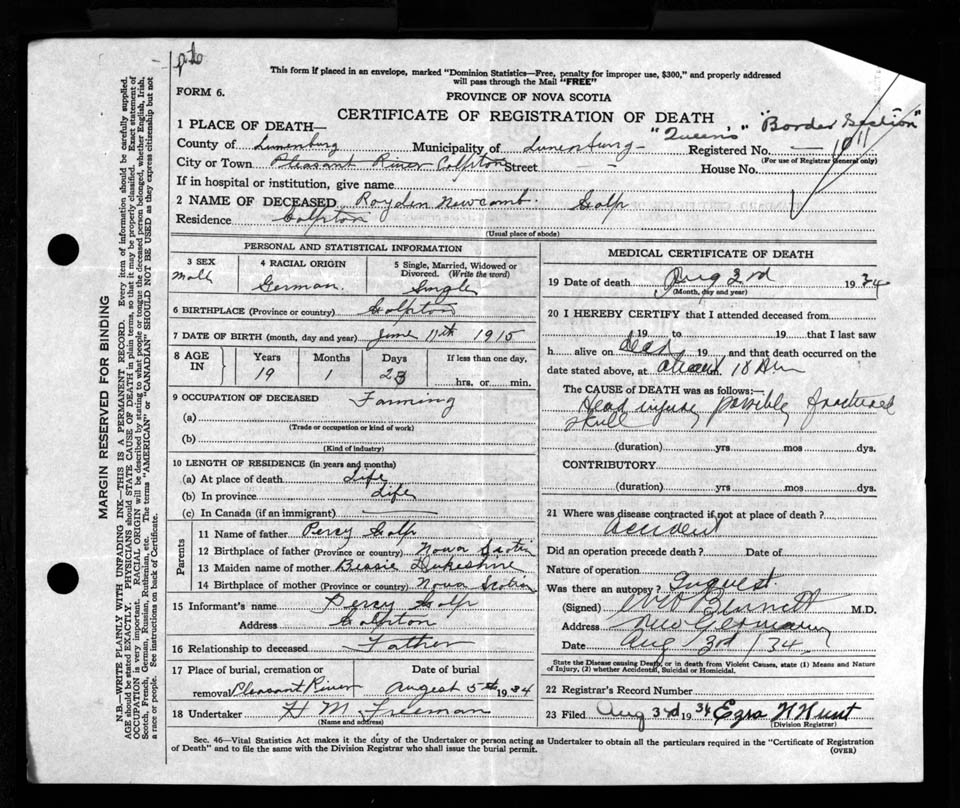 This form if placed in an envelope, marked "Dominion Statistics—Free, penalty for improper use, $300," and properly addressed
will pass through the Mail "FREE"
FORM 6.
PROVINCE OF NOVA SCOTIA
CERTIFICATE OF REGISTRATION OF DEATH
"Queen's" "Border Section"
1 PLACE OF DEATH—
County of Lunenburg Municipality of Lunenburg Registered No.
(For use of Registrar General only)
City or Town Pleasant River Colpton Street House No.
If in hospital or institution, give name
2 NAME OF DECEASED Royden Newcomb Colp
Residence Colpton
(Usual place of abode)
PERSONAL AND STATISTICAL INFORMATION
3 SEX 4 RACIAL ORIGIN 5 Single, Married, Widowed or
Divorced. (Write the word)
Male German. Single
6 BIRTHPLACE (Province or country) Colpton
7 DATE OF BIRTH (month, day and year) June 11th 1915
8 AGE IN Years Months Days If less than one day,
19 1 23 hrs. or min.
9 OCCUPATION OF DECEASED Farming
(a)
(Trade or occupation or kind of work)
(b)
(Kind of industry)
10 LENGTH OF RESIDENCE (in years and months)
(a) At place of death Life
(b) In province Life
(c) In Canada (if an immigrant)
Parents
11 Name of father Percy Colp
12 Birthplace of father (Province or country) Nova Scotia
13 Maiden name of mother Bessie Dukeshire
14 Birthplace of mother (Province or country) Nova Scotia
15 Informant's name Percy Colp
Address Colpton
16 Relationship to deceased Father
17 Place of burial, cremation or Date of burial
removal Pleasant River August 5th 1934
18 Undertaker H M Freeman
(Name and address)
MEDICAL CERTIFICATE OF DEATH
19 Date of death Aug 3rd 1934
(Month, day and year)
20 I HEREBY CERTIFY that I attended deceased from
19 to 19 that I last saw
h alive on dead 19 and that death occurred on the
date stated above, at about 10 AM
The CAUSE OF DEATH was as follows:—
Head injury possibly fractured
skull
(duration) yrs mos dys.
CONTRIBUTORY
(duration) yrs mos dys.
21 Where was disease contracted if not at place of death?
Accident
Did an operation precede death? Date of
Nature of operation
Was there an autopsy? Inquest
(Signed) Bennett M.D.
Address New Germany
Date Aug 3rd /34
State the Disease causing Death, or in death from Violent Causes, state (1) Means and Nature
of Injury, (2) whether Accidental, Suicidal or Homicidal.
22 Registrar's Record Number
23 Filed Aug 3rd 1934 Ezra N Hunt
(Division Registrar)
Sec. 46—Vital Statistics Act makes it the duty of the Undertaker or person acting as Undertaker to obtain all the particulars required in the "Certificate of Registration
of Death" and to file the same with the Division Registrar who shall issue the burial permit. (OVER)
MARGIN RESERVED FOR BINDING
N.B.—WRITE PLAINLY WITH UNFADING INK—THIS IS A PERMANENT RECORD. Every item of information should be carefully supplied.
AGE should be stated EXACTLY. PHYSICIANS should STATE CAUSE OF DEATH in plain terms, so that it may be properly classified. Exact statement of
OCCUPATION is very important. RACIAL ORIGIN will be described by stating to what people or tongue the deceased person belonged, whether English, Irish,
Scotch, French, German, Russian, Ruthenian, etc. The terms "AMERICAN" or "CANADIAN" SHOULD NOT BE USED as they express citizenship but not
a race or people. See instructions on back of Certificate.